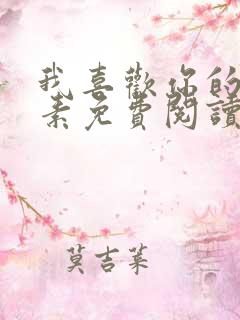 我喜歡你的
素免費閱讀
莫吉萊